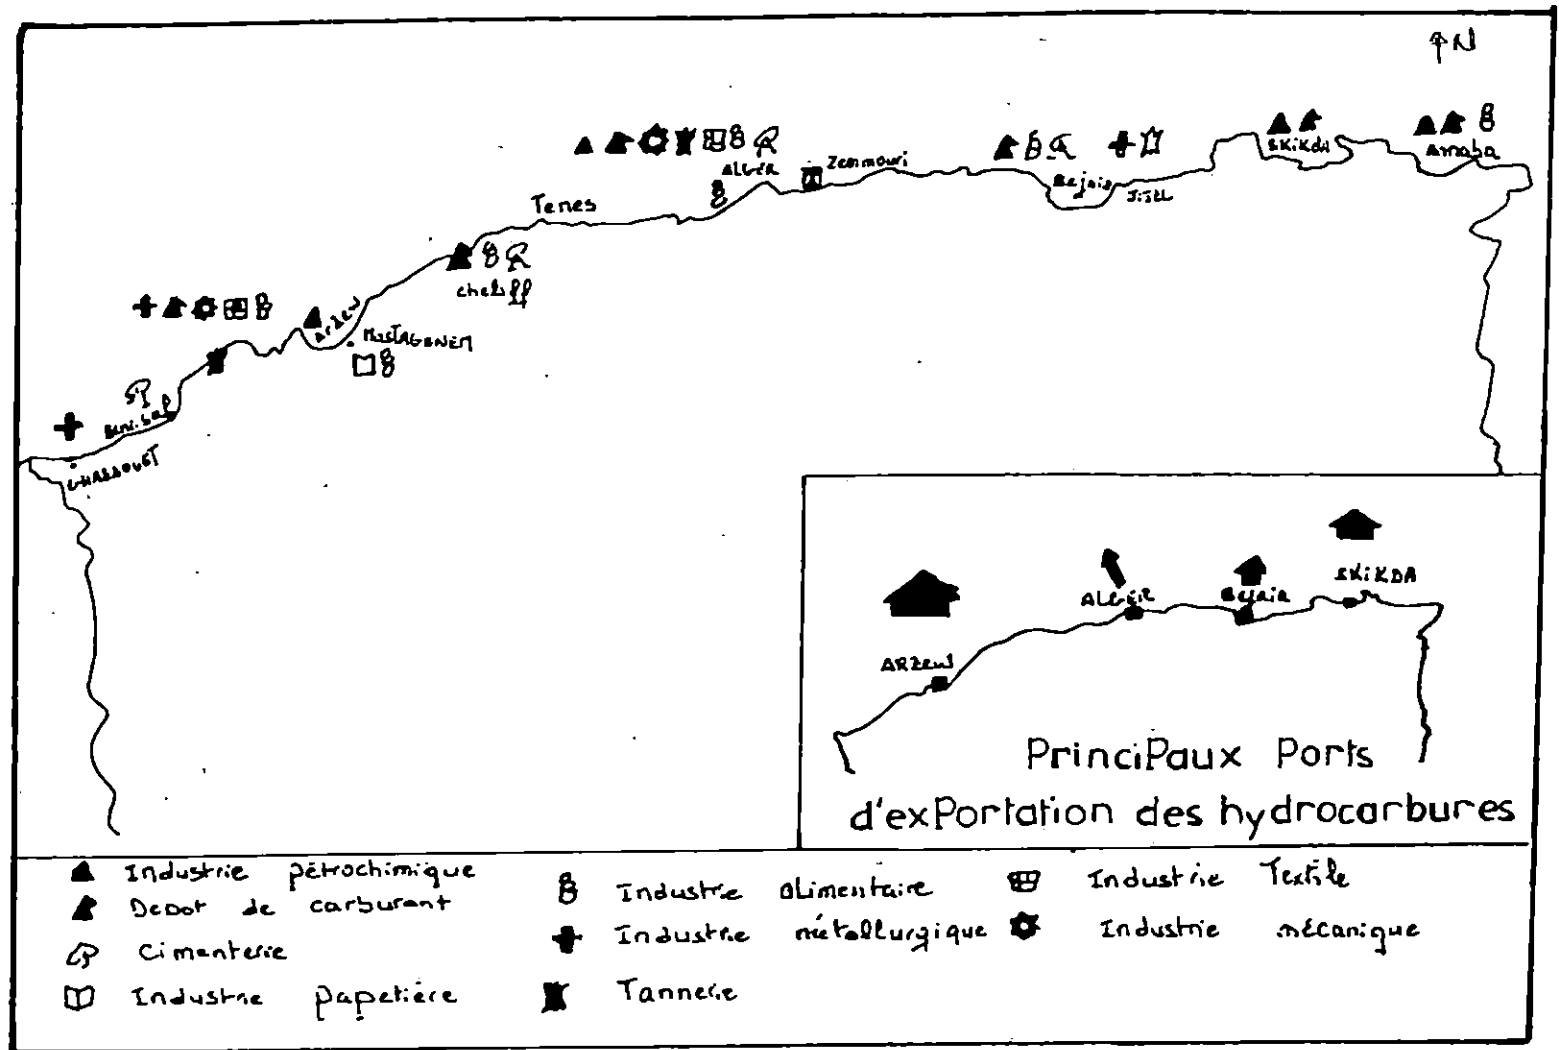 N
SKikda
Annaba
ALGER
Zemmouri
Bejaia
JiJEL
Tenes
cheliff
Arzew
MOSTAGANEM
Beni.Saf
GHAZAOUET
SKiKDA
ALGER
Bejaia
ARZEW
PrinciPaux Ports
d'exPortation des hydrocarbures
Industrie pétrochimique
Depot de carburant
Cimenterie
Industrie papetière
Industrie alimentaire
Industrie métallurgique
Tannerie
Industrie Textile
Industrie mécanique